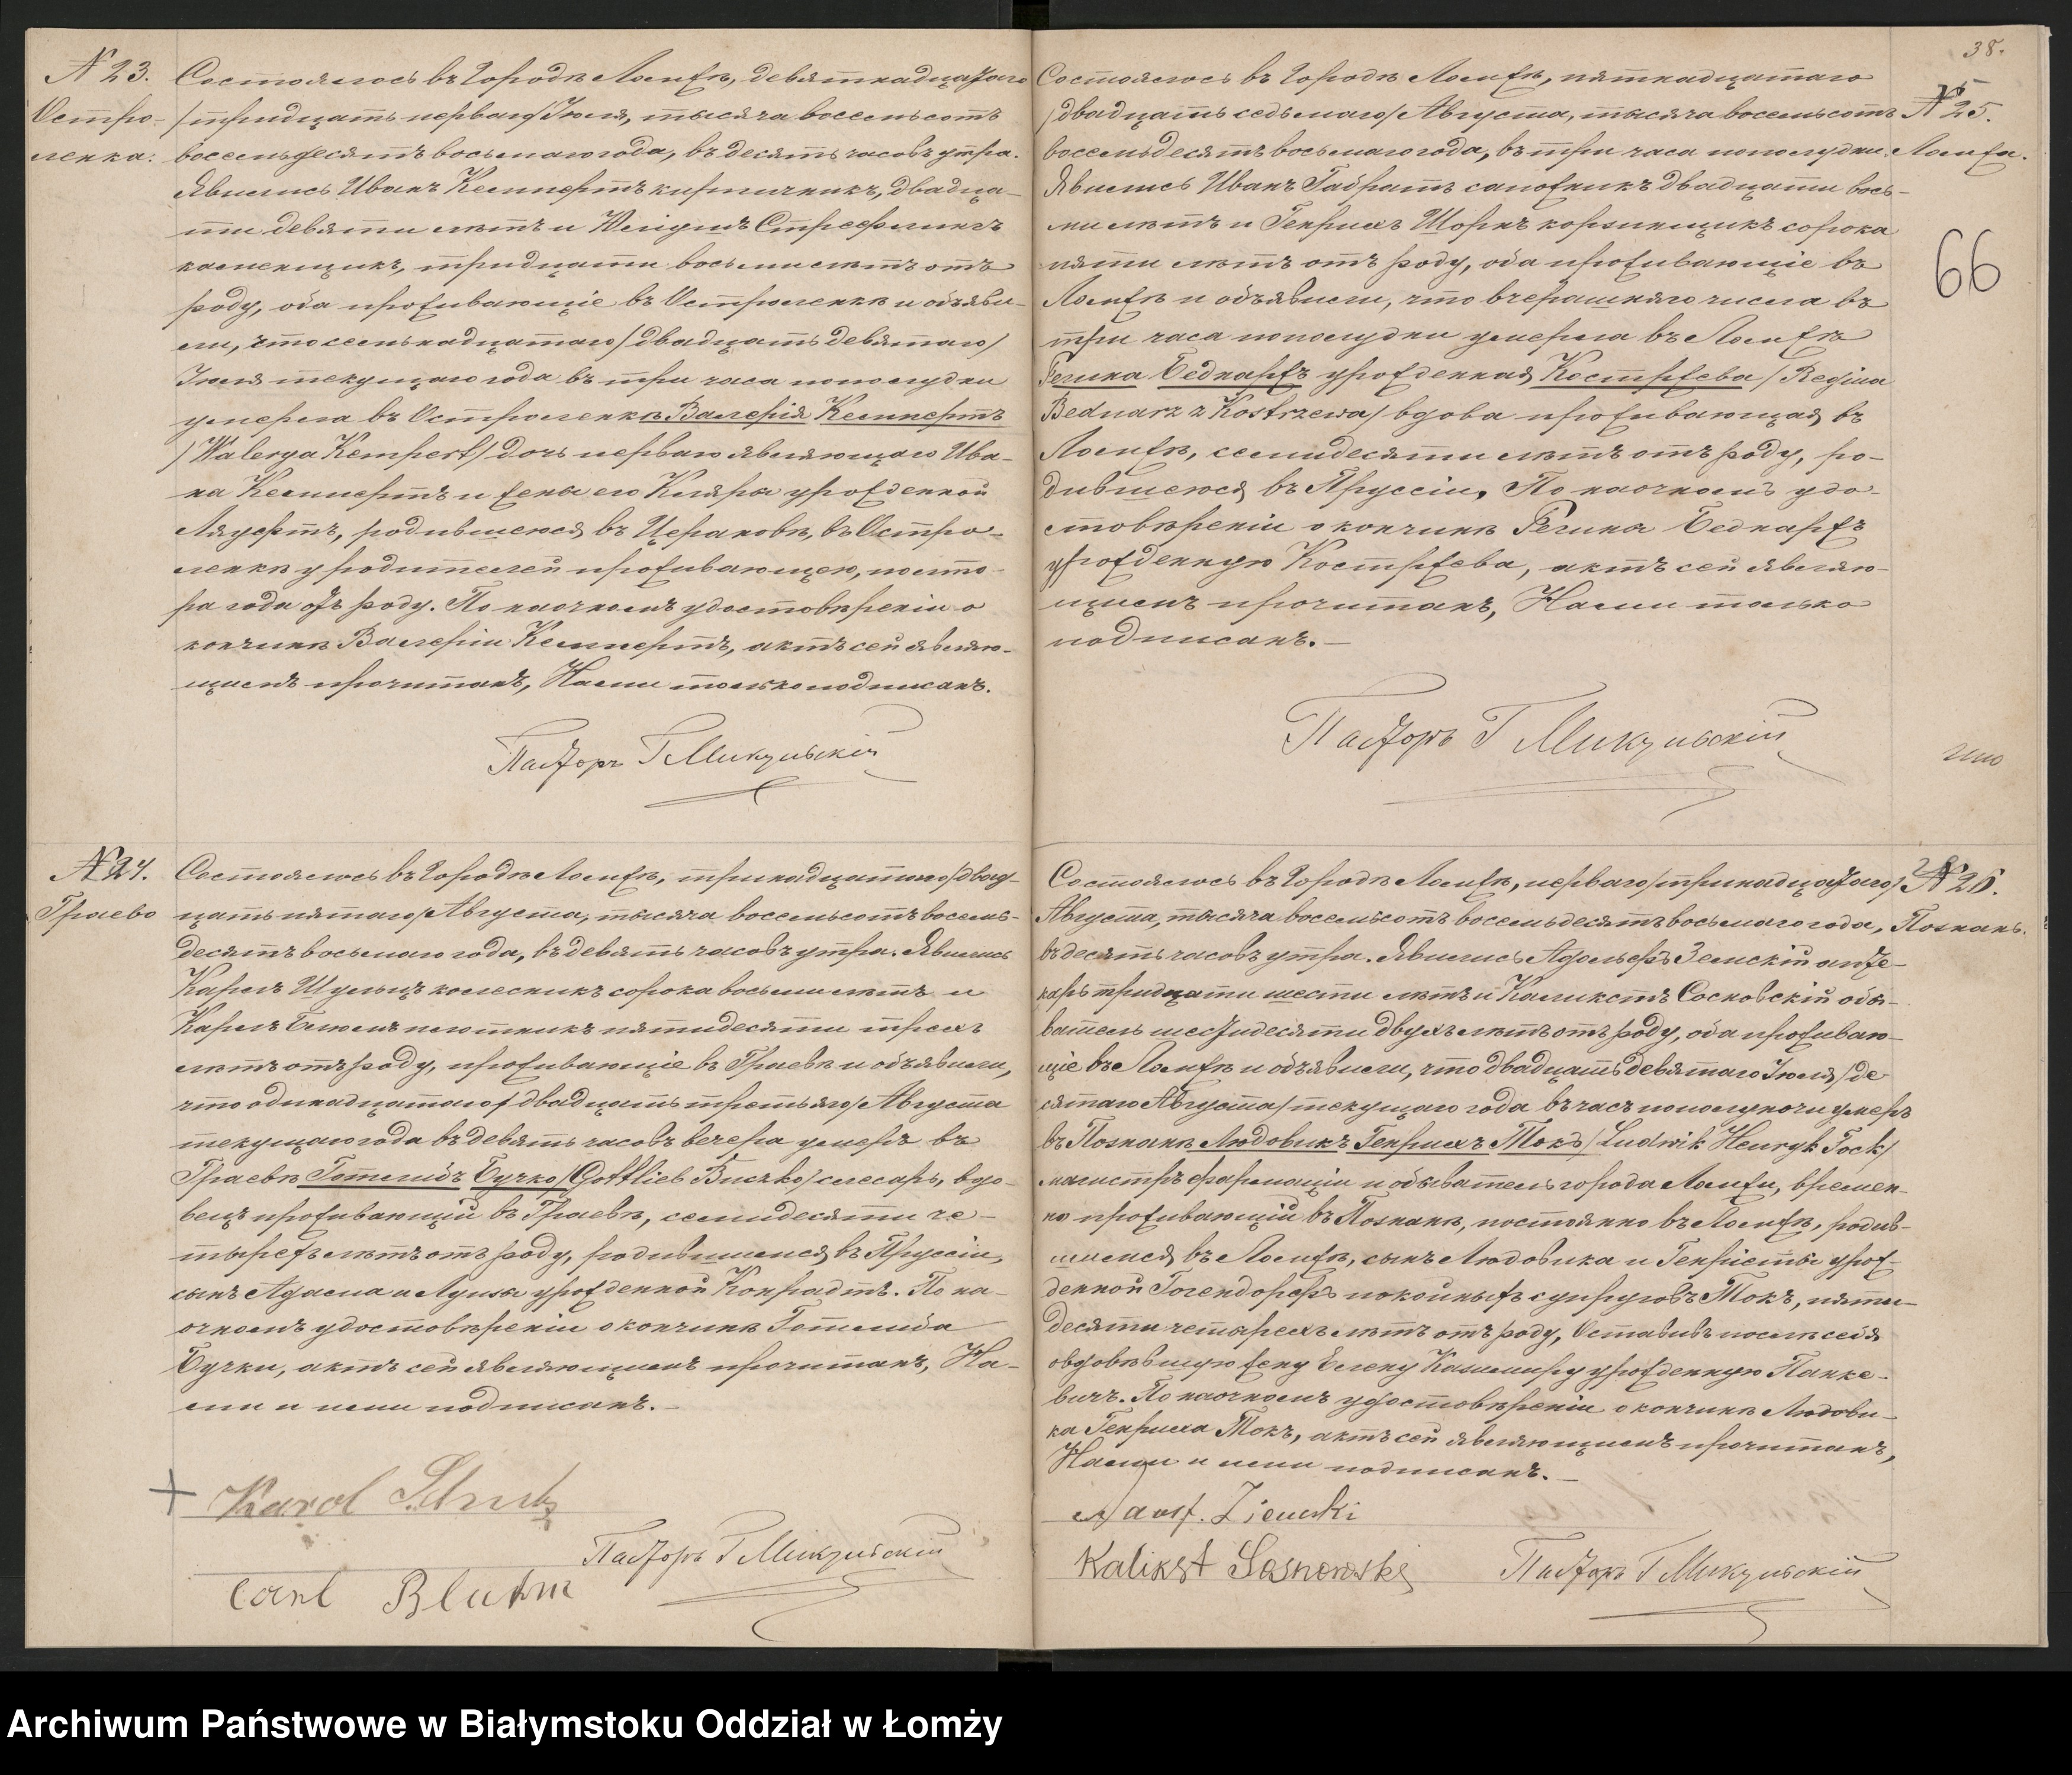 N 23.
Остро-
ленка.
Состоялось въ Городѣ Ломжѣ, девятнадцатаго
/тридцать перваго/ Іюля, тысяча восемьсотъ
восемьдесятъ восьмаго года, въ десять часовъ утра.
Явились Иванъ Кемпертъ кирпичникъ, двадца-
ти девяти лѣтъ и Юліушъ Стрефлингъ
каменщикъ, тридцати восьми лѣтъ отъ
роду, оба проживающіе въ Остроленкѣ и объяви-
ли, что семьнадцатаго /двадцать девятаго/
Іюля текущаго года въ три часа пополудни
умерла въ Остроленкѣ Валерія Кемпертъ
/Walerya Kempert/ дочь перваго являющаго Ива-
на Кемпертъ и жены его Кляры урожденной
Ляупертъ, родившеюся въ Церановѣ, въ Остро-
ленкѣ у родителей проживающею, полто-
ра года отъ роду. По наочномъ удостовѣреніи о
кончинѣ Валеріи Кемпертъ, актъ сей являю-
щимъ прочитанъ, Нами только подписанъ.
Пасторъ Г Микульскій
N 24.
Граево
Состоялось въ Городѣ Ломжѣ, тринадцатаго /двад-
цать пятаго/ Августа, тысяча восемьсотъ восемь-
десятъ восьмаго года, въ девять часовъ утра. Явились
Карлъ Шульцъ колесникъ сорока восьми лѣтъ и
Карлъ Блюмъ плотникъ пятидесяти трехъ
лѣтъ отъ роду, проживающіе въ Граевѣ и объявили,
что одинадцатаго /двадцать третьяго/ Августа
текущаго года въ девять часовъ вечера умеръ въ
Граевѣ Готлибъ Бучко /Gottlieb Buczko/ слесарь, вдо-
вецъ проживающій въ Граевѣ, семидесяти че-
тырехъ лѣтъ отъ роду, родившимся въ Пруссіи,
сынъ Адама и Луизы урожденной Конрадтъ. По на-
очномъ удостовѣреніи о кончинѣ Готлиба
Бучки, актъ сей являющимъ прочитанъ, На-
ми и ими подписанъ.
+ Karol Schultz
Пасторъ Г Микульскій
Carl Bluhm
38.
N 25.
Ломжа.
66
Состоялось въ Городѣ Ломжѣ, пятнадцатаго
/двадцать седьмаго/ Августа, тысяча восемьсотъ
восемьдесятъ восьмаго года, въ три часа пополудни.
Явились Иванъ Гадратъ сапожникъ двадцати вось-
ми лѣтъ и Генрихъ Шорнъ корзинщикъ сорока
пяти лѣтъ отъ роду, оба проживающіе въ
Ломжѣ и объявили, что вчерашняго числа въ
три часа пополудни умерла въ Ломжѣ
Регина Беднаржъ урожденная Костржева /Regina
Bednarz z Kostrzewa/ вдова проживающая въ
Ломжѣ, семидесяти лѣтъ отъ роду, ро-
дившеюся въ Пруссіи. По наочномъ удо-
стовѣреніи о кончинѣ Регина Беднаржъ
урожденную Костржева, актъ сей являю-
щимъ прочитанъ, Нами только
подписанъ.
Пасторъ Г Микульскій
N 26.
Познань.
Состоялось въ Городѣ Ломжѣ, перваго /тринадцатаго/
Августа, тысяча восемьсотъ восемьдесятъ восьмаго года,
въ десять часовъ утра. Явились Адольфъ Земскій апте-
карь тридцати шести лѣтъ и Каликстъ Сосновскій обы-
ватель шестидесяти двухъ лѣтъ отъ роду, оба проживаю-
щіе въ Ломжѣ и объявили, что двадцать девятаго Іюля /де-
сятаго Августа/ текущаго года въ часъ пополуночи умеръ
въ Познанѣ Людовикъ Генрихъ Токъ /Ludwik Henryk Tock/
магистръ фармаціи и обыватель города Ломжи, времен-
но проживающій въ Познанѣ, постоянно въ Ломжѣ, родив-
шимся въ Ломжѣ, сынъ Людовика и Генріеты урож-
денной Гогендорфъ покойныхъ супруговъ Токъ, пяти-
десяти четырехъ лѣтъ отъ роду, Оставивъ послѣ себя
овдовѣвшую жену Елену Казимиру урожденную Панке-
вичъ. По наочномъ удостовѣреніи о кончинѣ Людови-
ка Генриха Токъ, актъ сей являющимъ прочитанъ,
Нами и ими подписанъ.
Adolf. Ziemski
Kalikst Sosnowski
Пасторъ Г Микульскій
Archiwum Państwowe w Białymstoku Oddział w Łomży